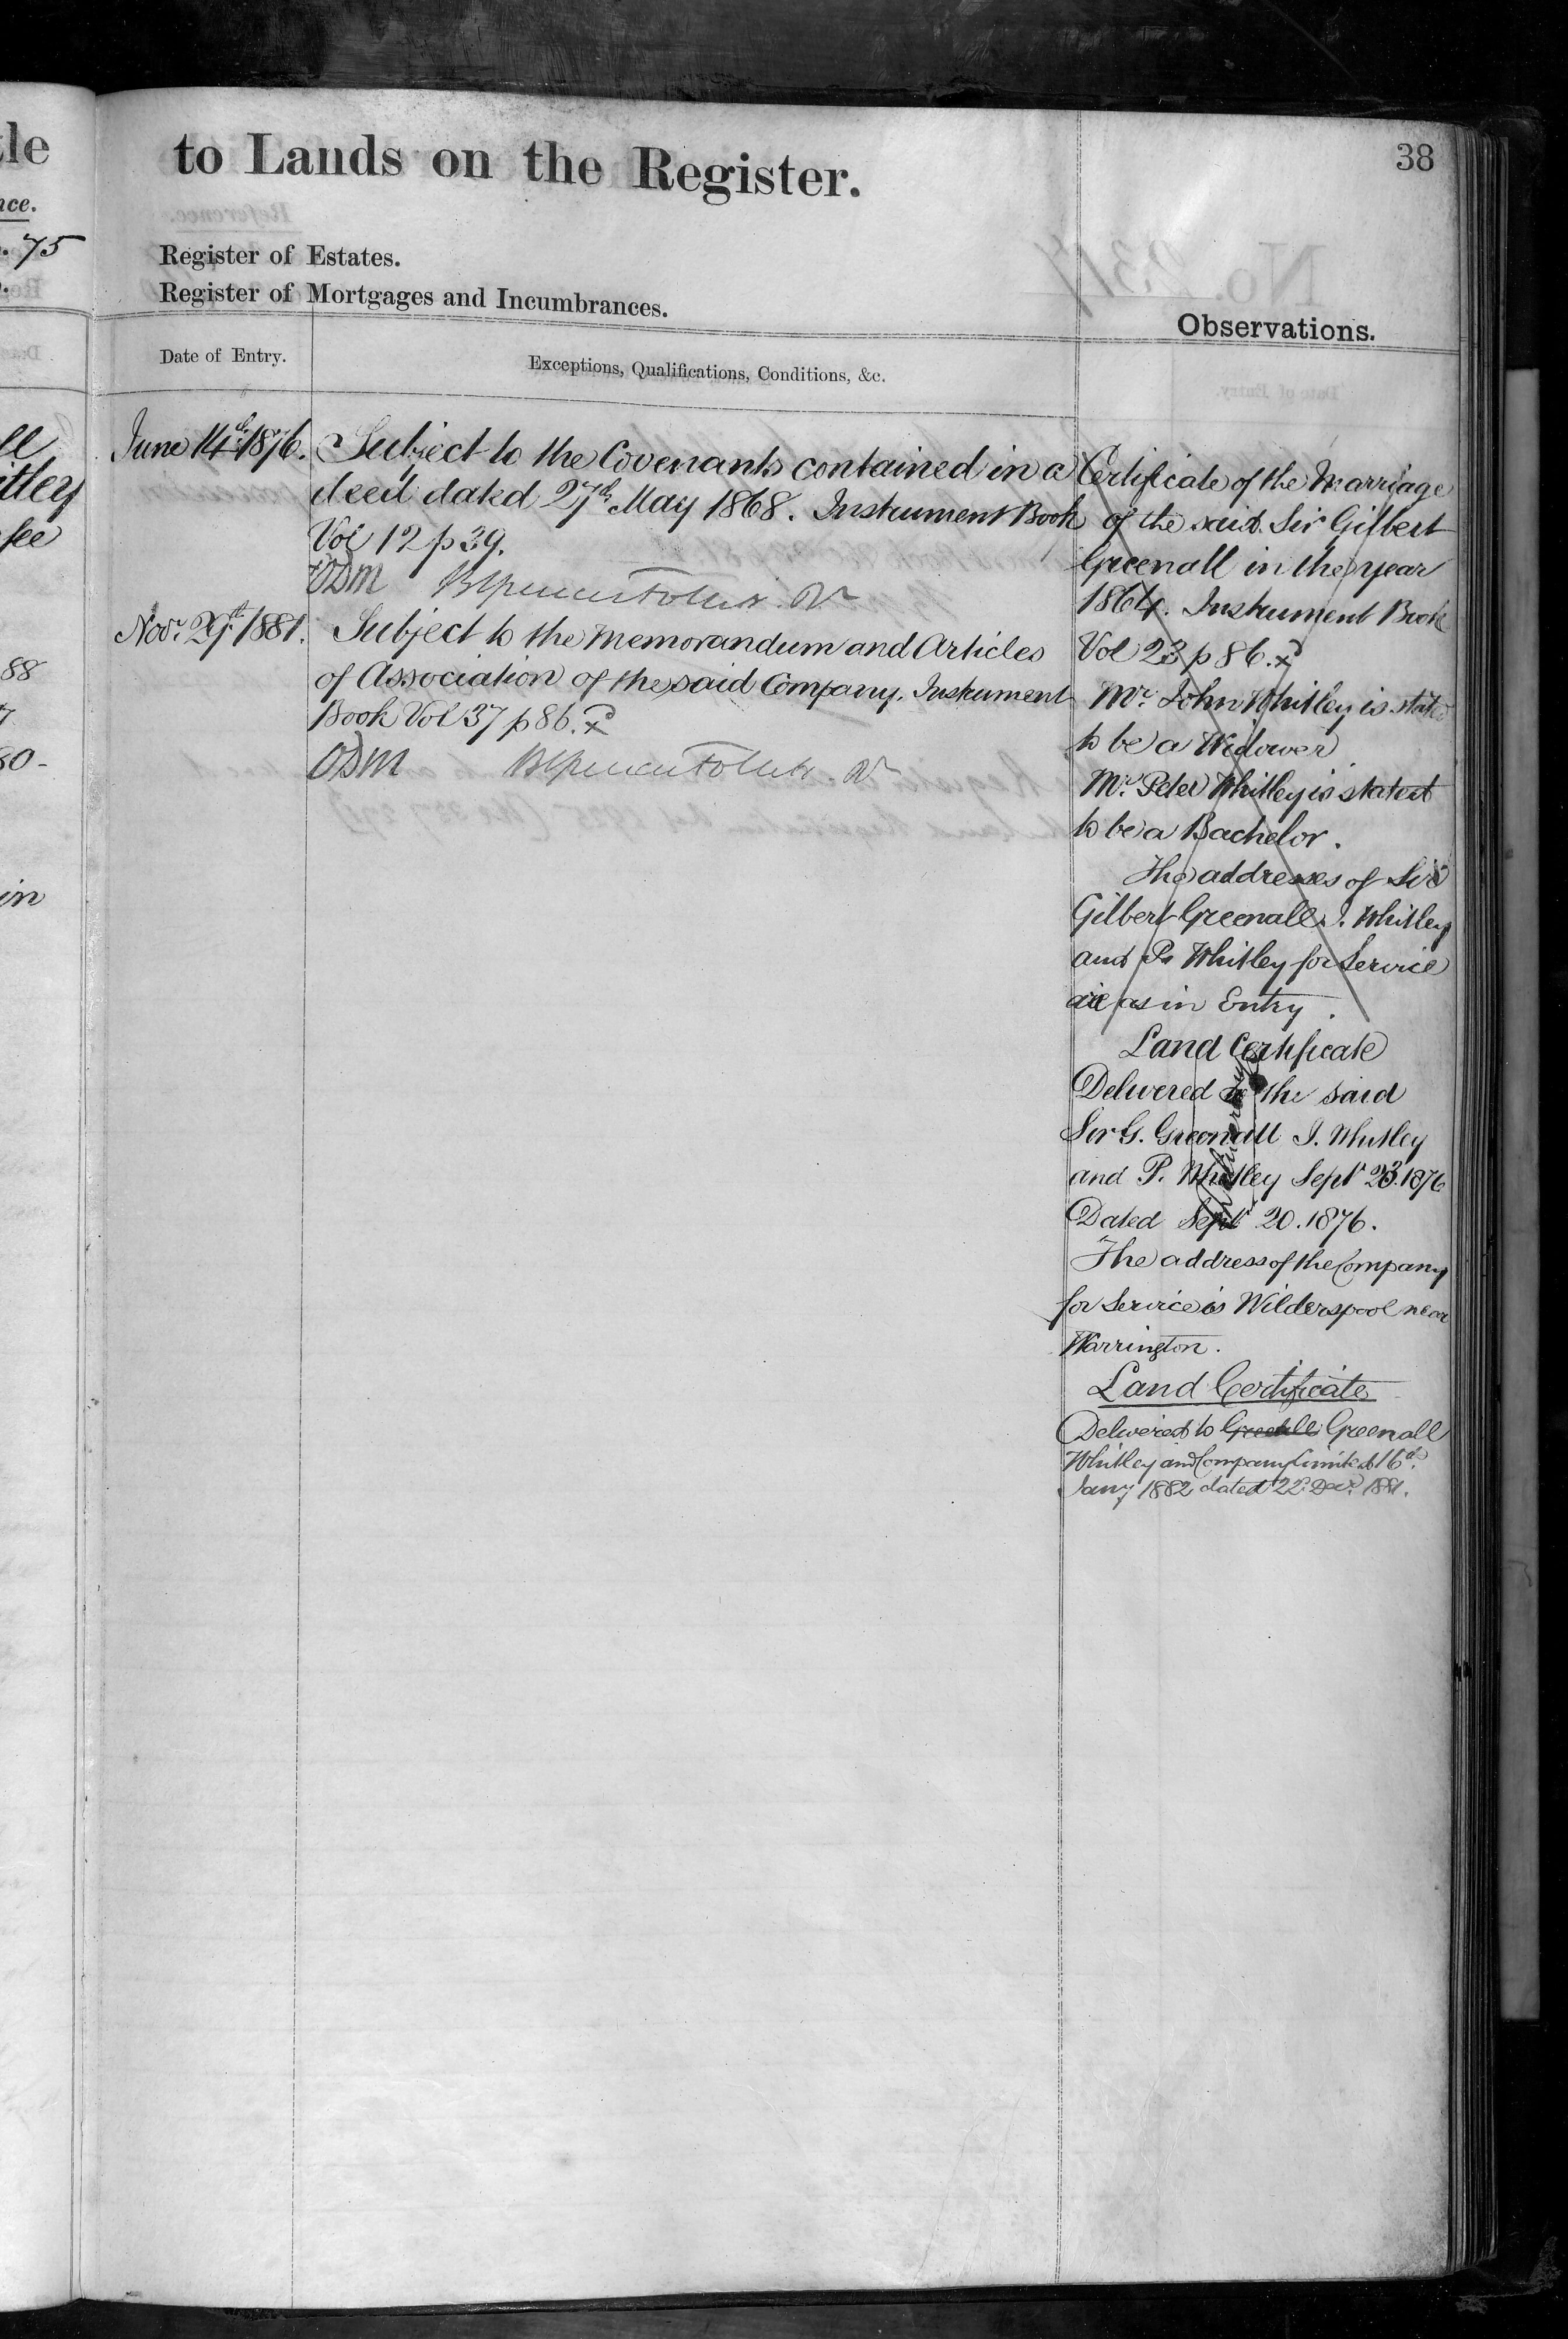 38
to Lands on the Register.
Register of Estates.
Register of Mortgages and Incumbrances.
Observations.
Date of Entry.
Exceptions, Qualifications, Conditions, &c.
June 14th 1876.
Subject to the Covenants contained in a
deed dated 27th May 1868. Instrument Book
Vol 12 p 39.
Novr. 29th 1881.
Subject to the Memorandum and Articles
of Association of the said Company. Instrument
Book Vol 37 p 86.
Certificate of the Marriage
of the said Sir Gilbert
Greenall in the year
1864. Instrument Book
Vol 23 p 86.
Mr. John Whitley is stated
to be a Widower
Mr. Peter Whitley is stated
to be a Bachelor.
The addresses of Sir
Gilbert Greenall J. Whitley
and P. Whitley for Service
are as in Entry.
Land Certificate
Delivered to the said
Sir G. Greenall J. Whitley
and P. Whitley Sept 23. 1876
Dated Sept 20. 1876.
The address of the Company
for Service is Wilderspool near
Warrington.
Land Certificate
Delivered to Greenall
Whitley and Company Limited 16th
Jany 1882 dated 22d Decr. 1881.